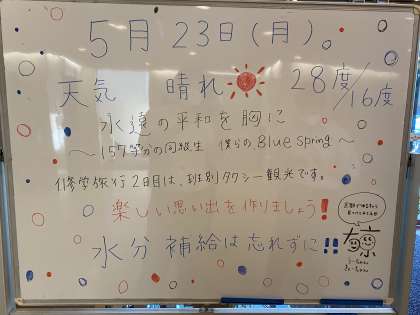 5月23日(月)。
天気 晴れ 28度/16度
永遠の平和を胸に
～157等分の同級生 僕らのBlue Spring～
修学旅行2日目は、班別タクシー観光です。
楽しい思い出を作りましょう!
水分補給は忘れずに!!